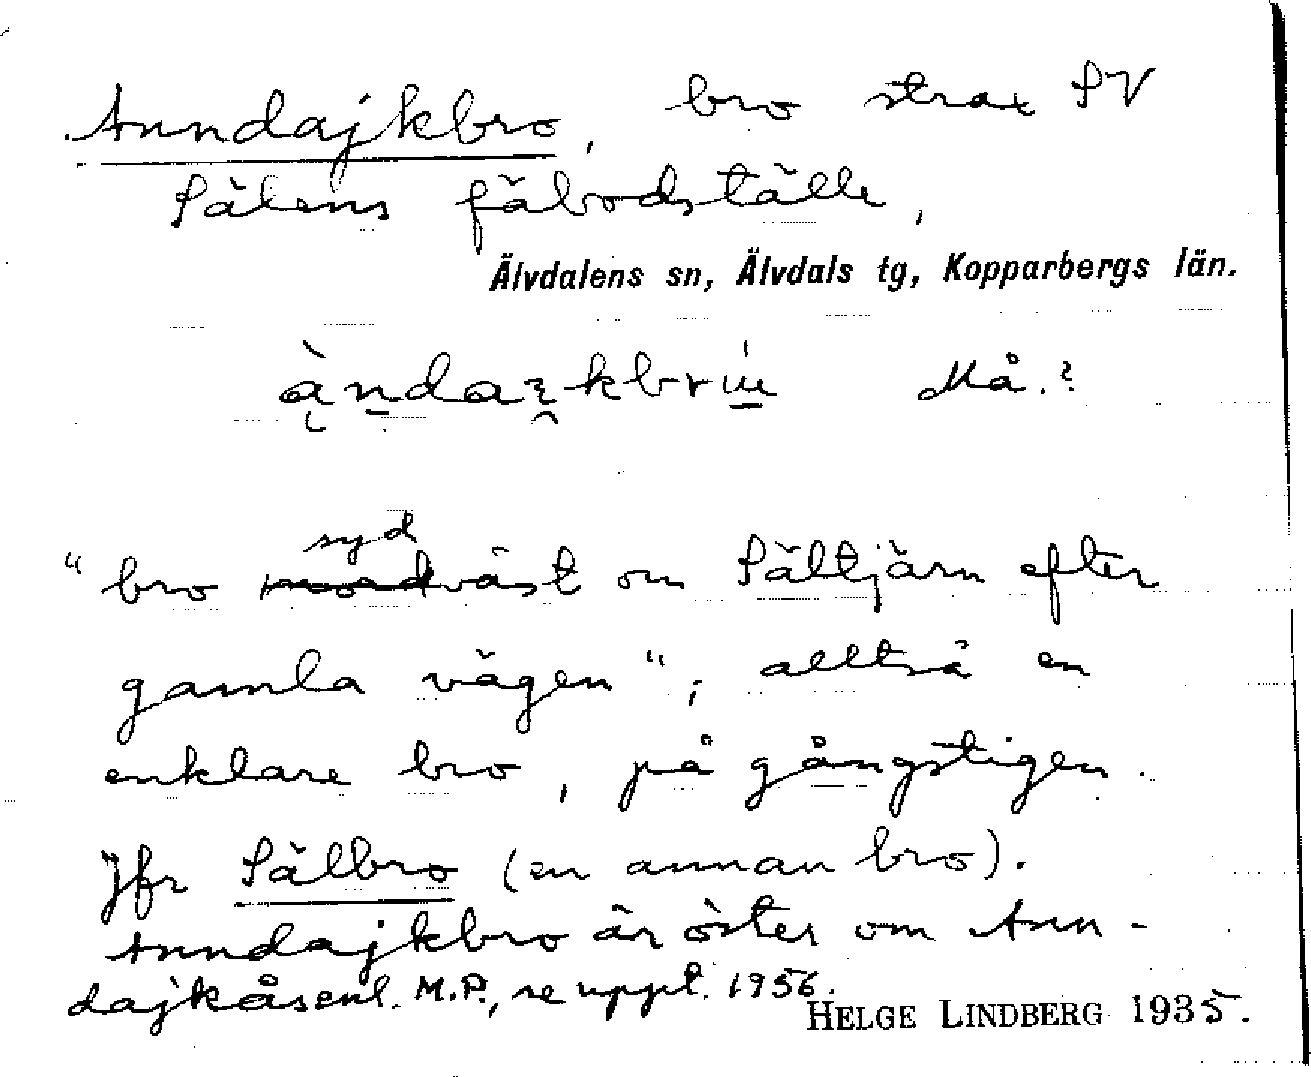 Anndajkbro, bro strax SV
Sälens fäbodställe,
Älvdalens sn, Älvdals tg, Kopparbergs län.
Må.?
syd
"bro nordväst om Sältjärn efter
gamla vägen"; alltså en
enklare bro, på gångstigen.
Jfr Sälbro (en annan bro).
Anndajkbro är öster om Ann-
dajkåsen enl. M.P., se uppt. 1956.
HELGE LINDBERG 1935.